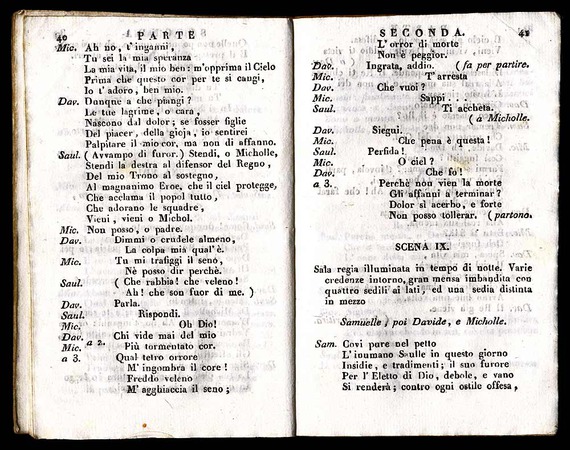 40
PARTE
Mic. Ah no, t'inganni,
Tu sei la mia speranza
La mia vita, il mio ben: m'opprima il Cielo
Prima che questo cor per te si cangi,
Io t'adoro, ben mio.
Dav. Dunque a che piangi?
Le tue lagrime, o cara,
Nascono dal dolor; se fosser figlie
Del piacer, della gioja, io sentirei
Palpitare il mio cor, ma non di affanno.
Saul. (Avvampo di furor.) Stendi, o Micholle,
Stendi la destra al difensor del Regno,
Del mio Trono al sostegno,
Al magnanimo Eroe, che il ciel protegge,
Che acclama il popol tutto,
Che adorano le squadre,
Vieni, vieni o Michol.
Mic. Non posso, o padre.
Dav. Dimmi o crudele almeno,
La colpa mia qual'è.
Mic. Tu mi trafiggi il seno,
Nè posso dir perchè.
Saul. (Che rabbia! che veleno!
Ah! che son fuor di me.)
Dav. Parla.
Saul. Rispondi.
Mic. Oh Dio!
Dav. Chi vide mai del mio
Mic. a 2. Più tormentato cor.
a 3. Qual tetro orrore
M'ingombra il core!
Freddo veleno
M'agghiaccia il seno;
SECONDA.
41
L'orror di morte
Non è peggior.
Dav. Ingrata, addio. (fa per partire.
Mic. T'arresta
Dav. Che vuoi?
Mic. Sappi...
Saul. Ti accheta.
(a Micholle.
Dav. Siegui.
Mic. Che pena è questa!
Saul. Perfida!
Mic. O ciel?
Dav. Che fo!
a 3. Perchè non vien la morte
Gli affanni a terminar?
Dolor sì acerbo, e forte
Non posso tollerar. (partono.
SCENA IX.
Sala regia illuminata in tempo di notte. Varie
credenze intorno, gran mensa imbandita con
quattro sedili ai lati, ed una sedia distinta
in mezzo
Samuelle, poi Davide, e Micholle.
Sam. Covi pure nel petto
L'inumano Saulle in questo giorno
Insidie, e tradimenti; il suo furore
Per l'Eletto di Dio, debole, e vano
Si renderà; contro ogni ostile offesa,